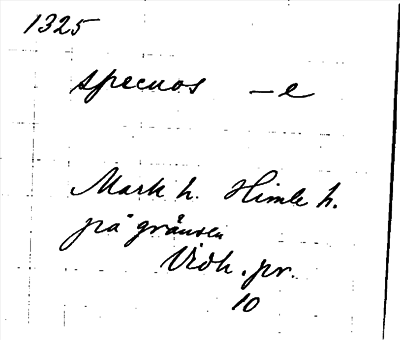 1325
specuos – e
Mark h. Himle h.
på gränsen
Vidh. pr.
10